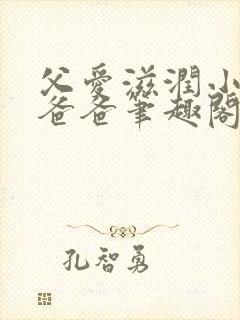 父愛滋潤小
爸爸筆趣閣
孔智勇